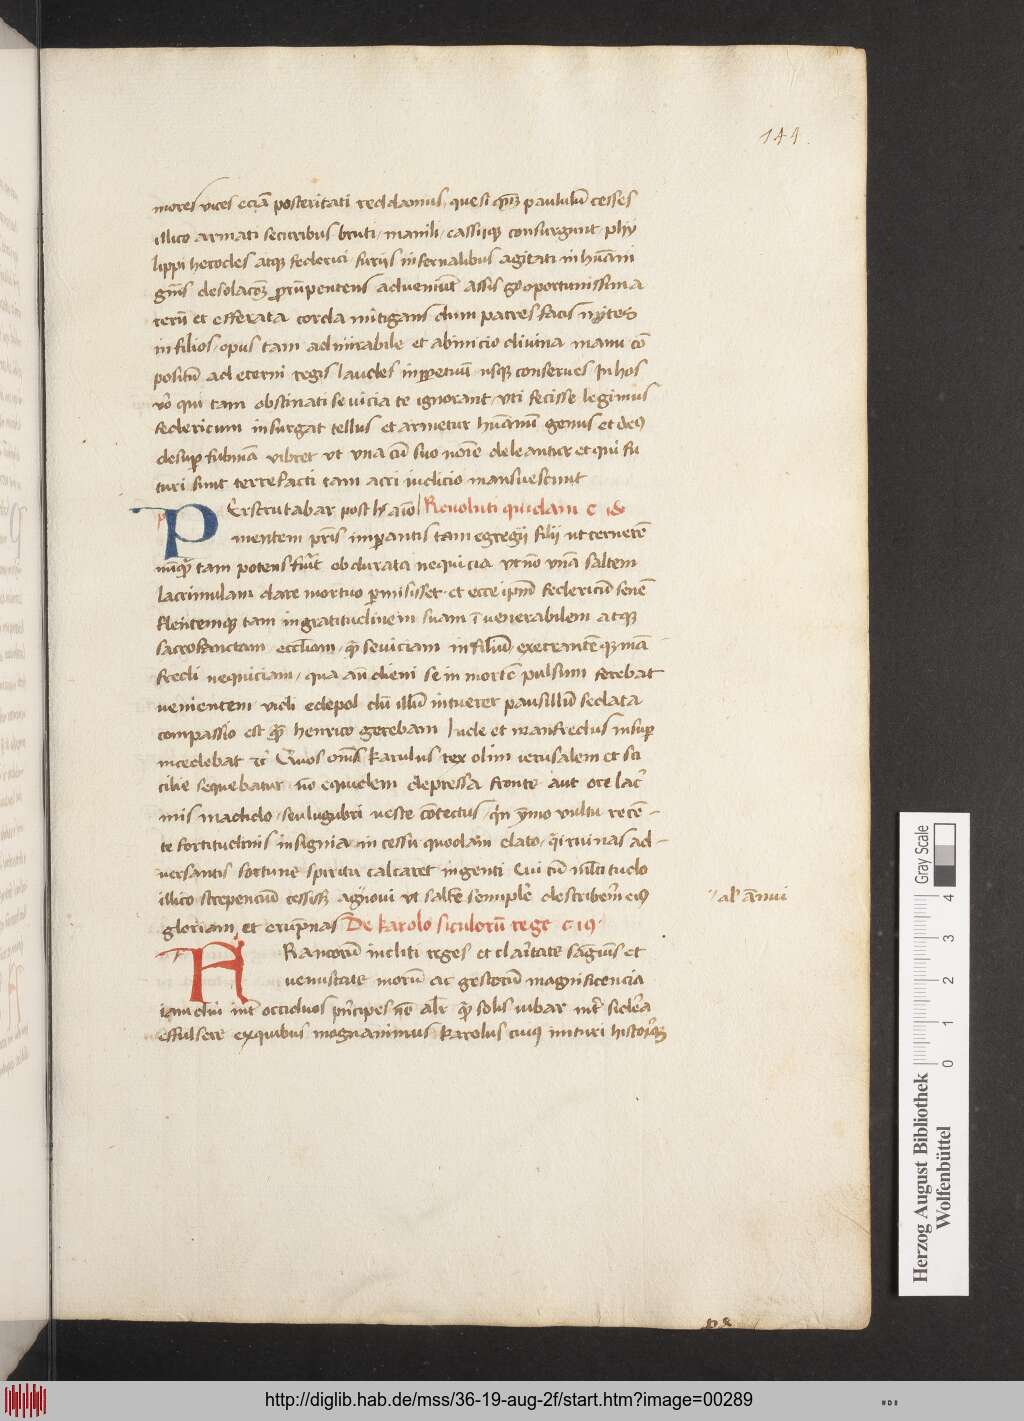 144
mores vices eciã posteritati reddamus, quesi qͫꝫ paululũ cesses
illico armati securibus bruti, manili, cassiqꝫ consurgunt phy
lippi herodes atqꝫ federici furijs infernalibus agitati in hũani
gnĩs desolacõꝫ prorũpentens adveniũt assis gͦ oportunissima
rerũ et efferata corda mitigans dum patres facis mytes
in filios, opus tam admirabile et abinicio divina manu cõ
positũ ad eterni regis laudes inꝑpetuũ usqꝫ conserves In hos
vͦo qui tam obstinati sevicia te ignorant, uti fecisse legimus
federicum insurgat tellus et armetur hũanũ genus et deus
desuꝑ fulmã vibret ut una cũ suo noĩe deleantur et qui fu
turi sunt terrefacti tam acri iudicio mansuescunt
PErscrutabar post hͨ aĩo Revoluti quidam C 18
mentem pr̃is imꝑantis tam egregij filij ut cernerẽ
nũqͣ tam potens fu̾it obdurata nequicia ut nõ unã saltem
lacrimulam dare mortuo ꝑmisisset. et ecce ip̃m federicũ senẽ
flentemqꝫ tam ingratitudinem suam ĩ venerabilem atqꝫ
sacrosanctam eccl̃iam, qͣ seviciam in filiũ exerantẽ qꝫ mã
fredi nequiciam, qua audieni se in mortẽ pulsum ferebat
venientem vidi edepol dũ illũ intuerer pausillũ sedata
compassio est qͣ henrico gerebam Inde et manfredus insuꝑ
incedebat &c Quos om̃s karulus rex olim ierusalem et sci
cilie sequebatur, nõ equidem depressa fronte aut ore lacͥ
mis madido, seu lugubri veste cõtectus, qͥn ỹmo vultu recẽ-
te fortitudinis insignia, in cessu quodam elato, qͣi ruinas ad-
versantis fortune spiritu calcaret ingenti Cui cũ ml̃ti tudo
illico strepenciũ cessissꝫ agnovi ut saltẽ semiplẽ describerẽ eiꝰ
al' ãẽnui
gloriam, et erũpnas De karolo siculorũ rege C 19
FRancorũ incliti reges et claritate sãguĩs et
venustate morũ ac gestorũ magnificencia
iamdiũ int̃ occiduos pͥncipes nõ alr̃ qͣ solis iubar int̃ sidera
effulsere ex quibus magnanimus karolus cuiꝰ imturi historiqꝫ
Gray Scale
0 1 2 3 4
Herzog August Bibliothek
Wolfenbüttel
http://diglib.hab.de/mss/36-19-aug-2f/start.htm?image=00289